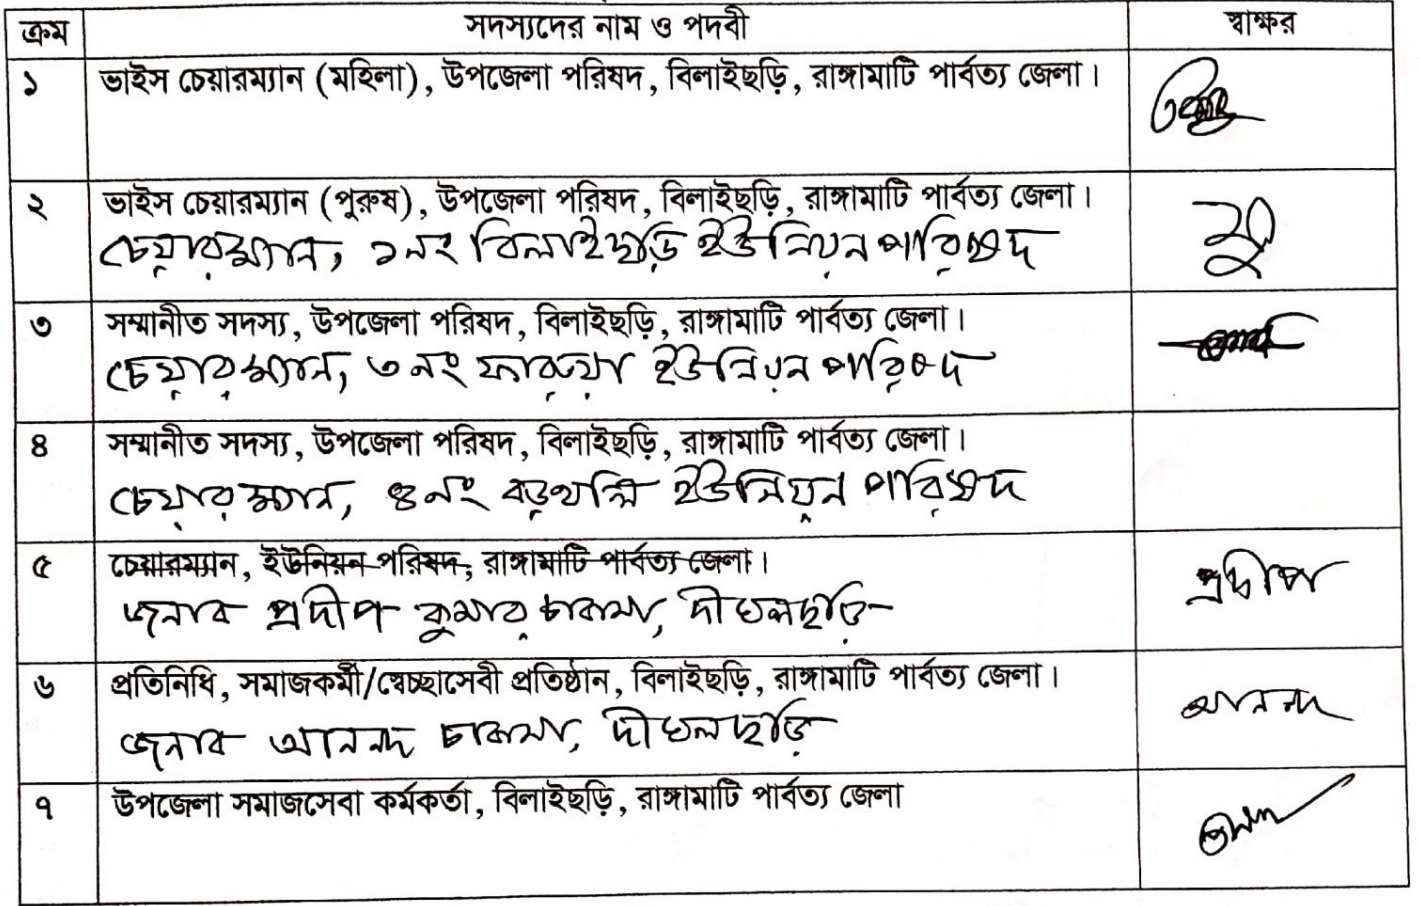 ক্রম সদস্যদের নাম ও পদবী স্বাক্ষর
১ ভাইস চেয়ারম্যান (মহিলা), উপজেলা পরিষদ, বিলাইছড়ি, রাঙ্গামাটি পার্বত্য জেলা।
২ ভাইস চেয়ারম্যান (পুরুষ), উপজেলা পরিষদ, বিলাইছড়ি, রাঙ্গামাটি পার্বত্য জেলা।
চেয়ারম্যান, ১নং বিলাইছড়ি ইউনিয়ন পরিষদ
৩ সম্মানীত সদস্য, উপজেলা পরিষদ, বিলাইছড়ি, রাঙ্গামাটি পার্বত্য জেলা।
চেয়ারম্যান, ৩নং ফারুয়া ইউনিয়ন পরিষদ
৪ সম্মানীত সদস্য, উপজেলা পরিষদ, বিলাইছড়ি, রাঙ্গামাটি পার্বত্য জেলা।
চেয়ারম্যান, ৪নং বড়থলি ইউনিয়ন পরিষদ
৫ চেয়ারম্যান, ইউনিয়ন পরিষদ, রাঙ্গামাটি পার্বত্য জেলা।
জনাব প্রদীপ কুমার চাকমা, দীঘলছড়ি প্রদীপ
৬ প্রতিনিধি, সমাজকর্মী/স্বেচ্ছাসেবী প্রতিষ্ঠান, বিলাইছড়ি, রাঙ্গামাটি পার্বত্য জেলা।
জনাব আনন্দ চাকমা, দীঘলছড়ি আনন্দ
৭ উপজেলা সমাজসেবা কর্মকর্তা, বিলাইছড়ি, রাঙ্গামাটি পার্বত্য জেলা